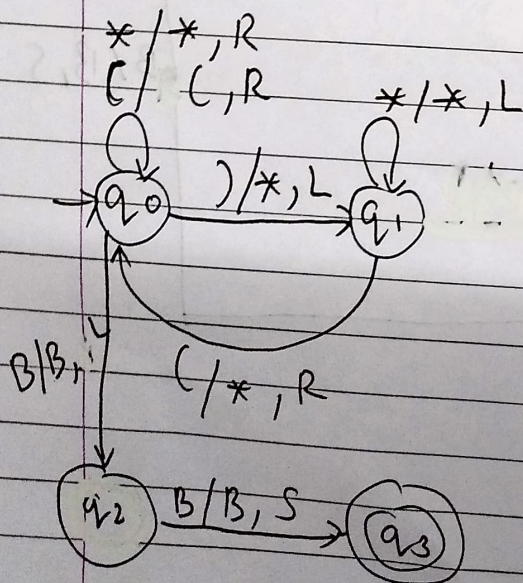 * / *, R
( / (, R
* / *, L
q0
) / *, L
q1
B/B, L
( / *, R
q2
B/B, S
q3